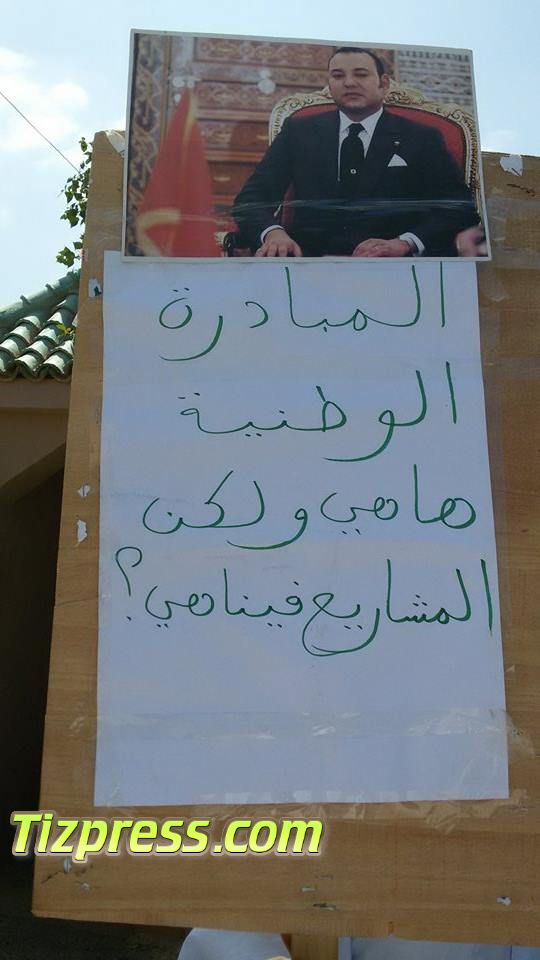 المبادرة
الوطنية
هاهي ولكن
المشاريع فيناهي؟
Tizpress.com